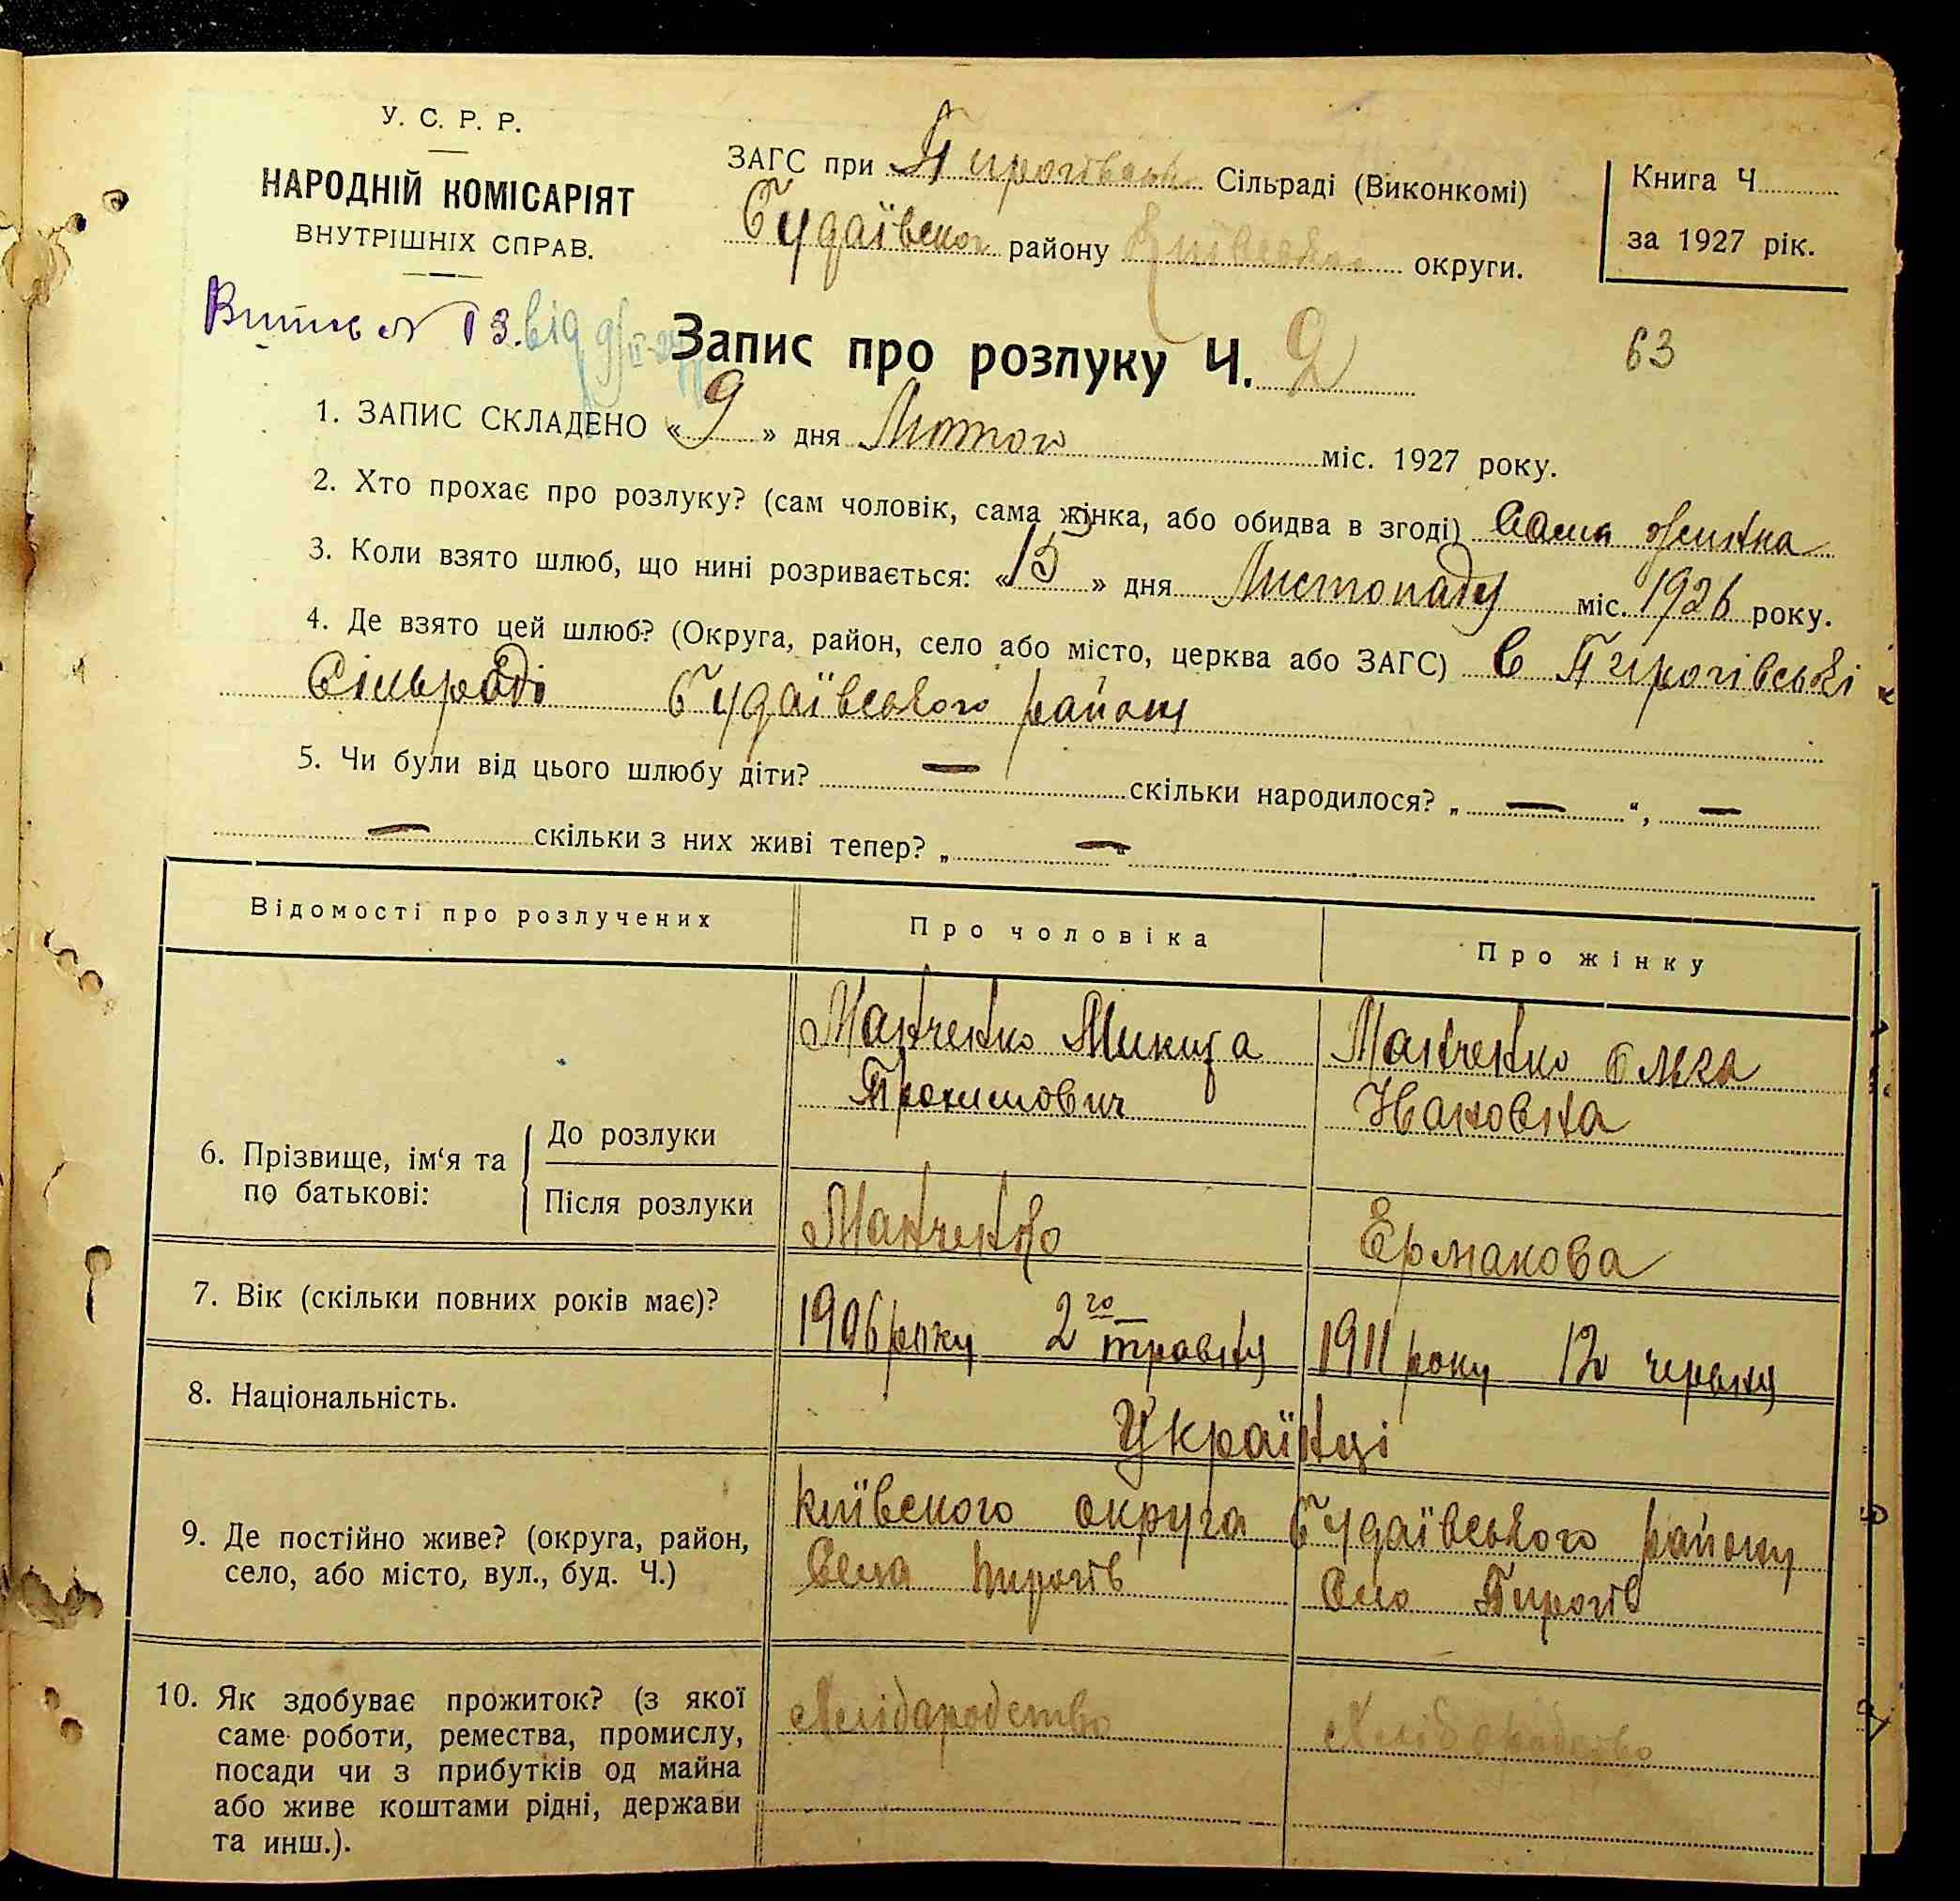 У. С. Р. Р.
НАРОДНІЙ КОМІСАРІЯТ
ВНУТРІШНІХ СПРАВ.
ЗАГС при Пирогівськ Сільраді (Виконкомі)
Будаївског району Київськог округи.
Книга Ч.
за 1927 рік.
№ 13. від
Запис про розлуку Ч. 2
63
1. ЗАПИС СКЛАДЕНО «9» дня Лютог міс. 1927 року.
2. Хто прохає про розлуку? (сам чоловік, сама жінка, або обидва в згоді) Сама жінка
3. Коли взято шлюб, що нині розривається: «13» дня Листопаду міс. 1926 року.
4. Де взято цей шлюб? (Округа, район, село або місто, церква або ЗАГС) В Пирогівські
Сільраді Будаївського району
5. Чи були від цього шлюбу діти? — скільки народилося? „ — “, —
— скільки з них живі тепер? „ — “
Відомості про розлучених
Про чоловіка
Про жінку
6. Прізвище, ім‘я та
по батькові:
До розлуки
Манченко Микита
Трохимович
Манченко Ольга
Ивановна
Після розлуки
Манченко
Ермакова
7. Вік (скільки повних років має)?
1906 року 2го травня
1911 року 12 червня
8. Національність.
Українці
9. Де постійно живе? (округа, район,
село, або місто, вул., буд. Ч.)
Київского округа Будаївського району
Села Пирогів
Село Пирогів
10. Як здобуває прожиток? (з якої
саме роботи, ремества, промислу,
посади чи з прибутків од майна
або живе коштами рідні, держави
та инш.).